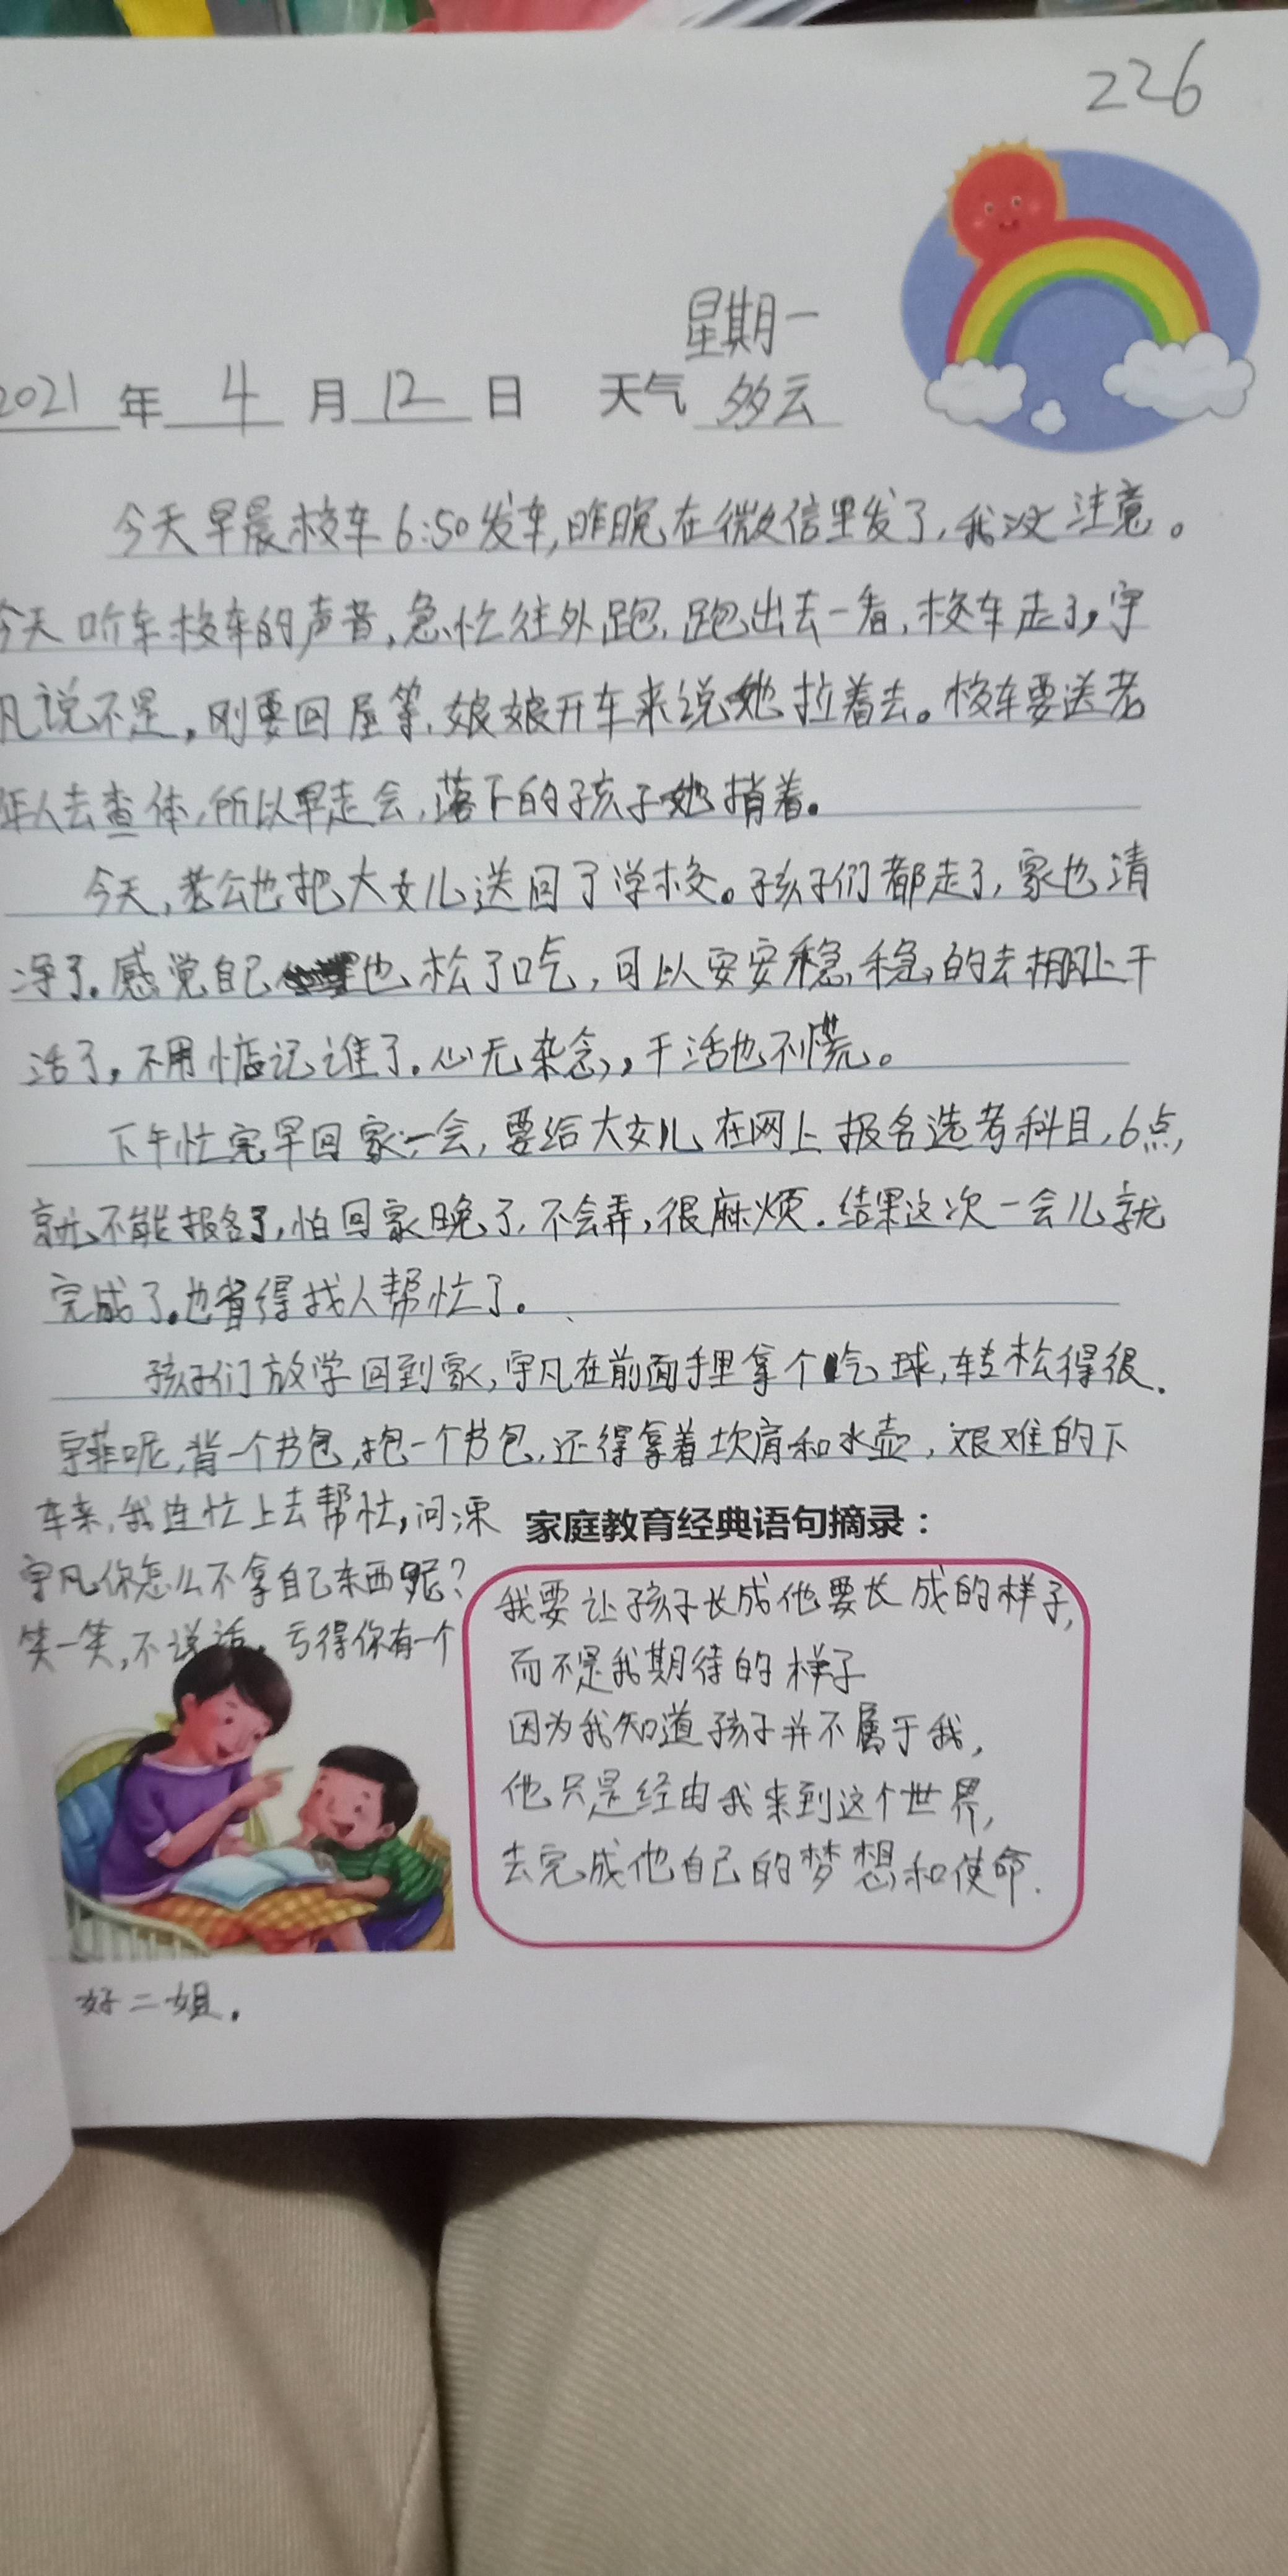 226
星期一
2021年 4 月 12 日 天气 多云
今天早晨校车6:50发车,昨晚在微信里发了,我没注意。
今天听车校车的声音,急忙往外跑,跑出去一看,校车走了,宇
凡说不是,刚要回屋等,娘娘开车来说她拉着去。校车要送老
年人去查体,所以早走会,落下的孩子她捎着。
今天,老公也把大女儿送回了学校。孩子们都走了,家也清
净了。感觉自己也松了口气,可以安安稳稳的去棚上干
活了,不用惦记谁了。心无杂念,,干活也不慌。
下午忙完早回家一会,要给大女儿在网上报名选考科目,6点,
就不能报名了,怕回家晚了,不会弄,很麻烦.结果这次一会儿就
完成了。也省得找人帮忙了。
孩子们放学回到家,宇凡在前面手里拿个气球,轻松得很.
宇菲呢,背一个书包,抱一个书包,还得拿着坎肩和水壶,艰难的下
车来,我连忙上去帮忙,问
宇凡你怎么不拿自己东西呢?
笑一笑,不说话。亏得你有一个
好二姐.
家庭教育经典语句摘录:
我要让孩子长成他要长成的样子,
而不是我期待的样子
因为我知道孩子并不属于我,
他只是经由我来到这个世界,
去完成他自己的梦想和使命.